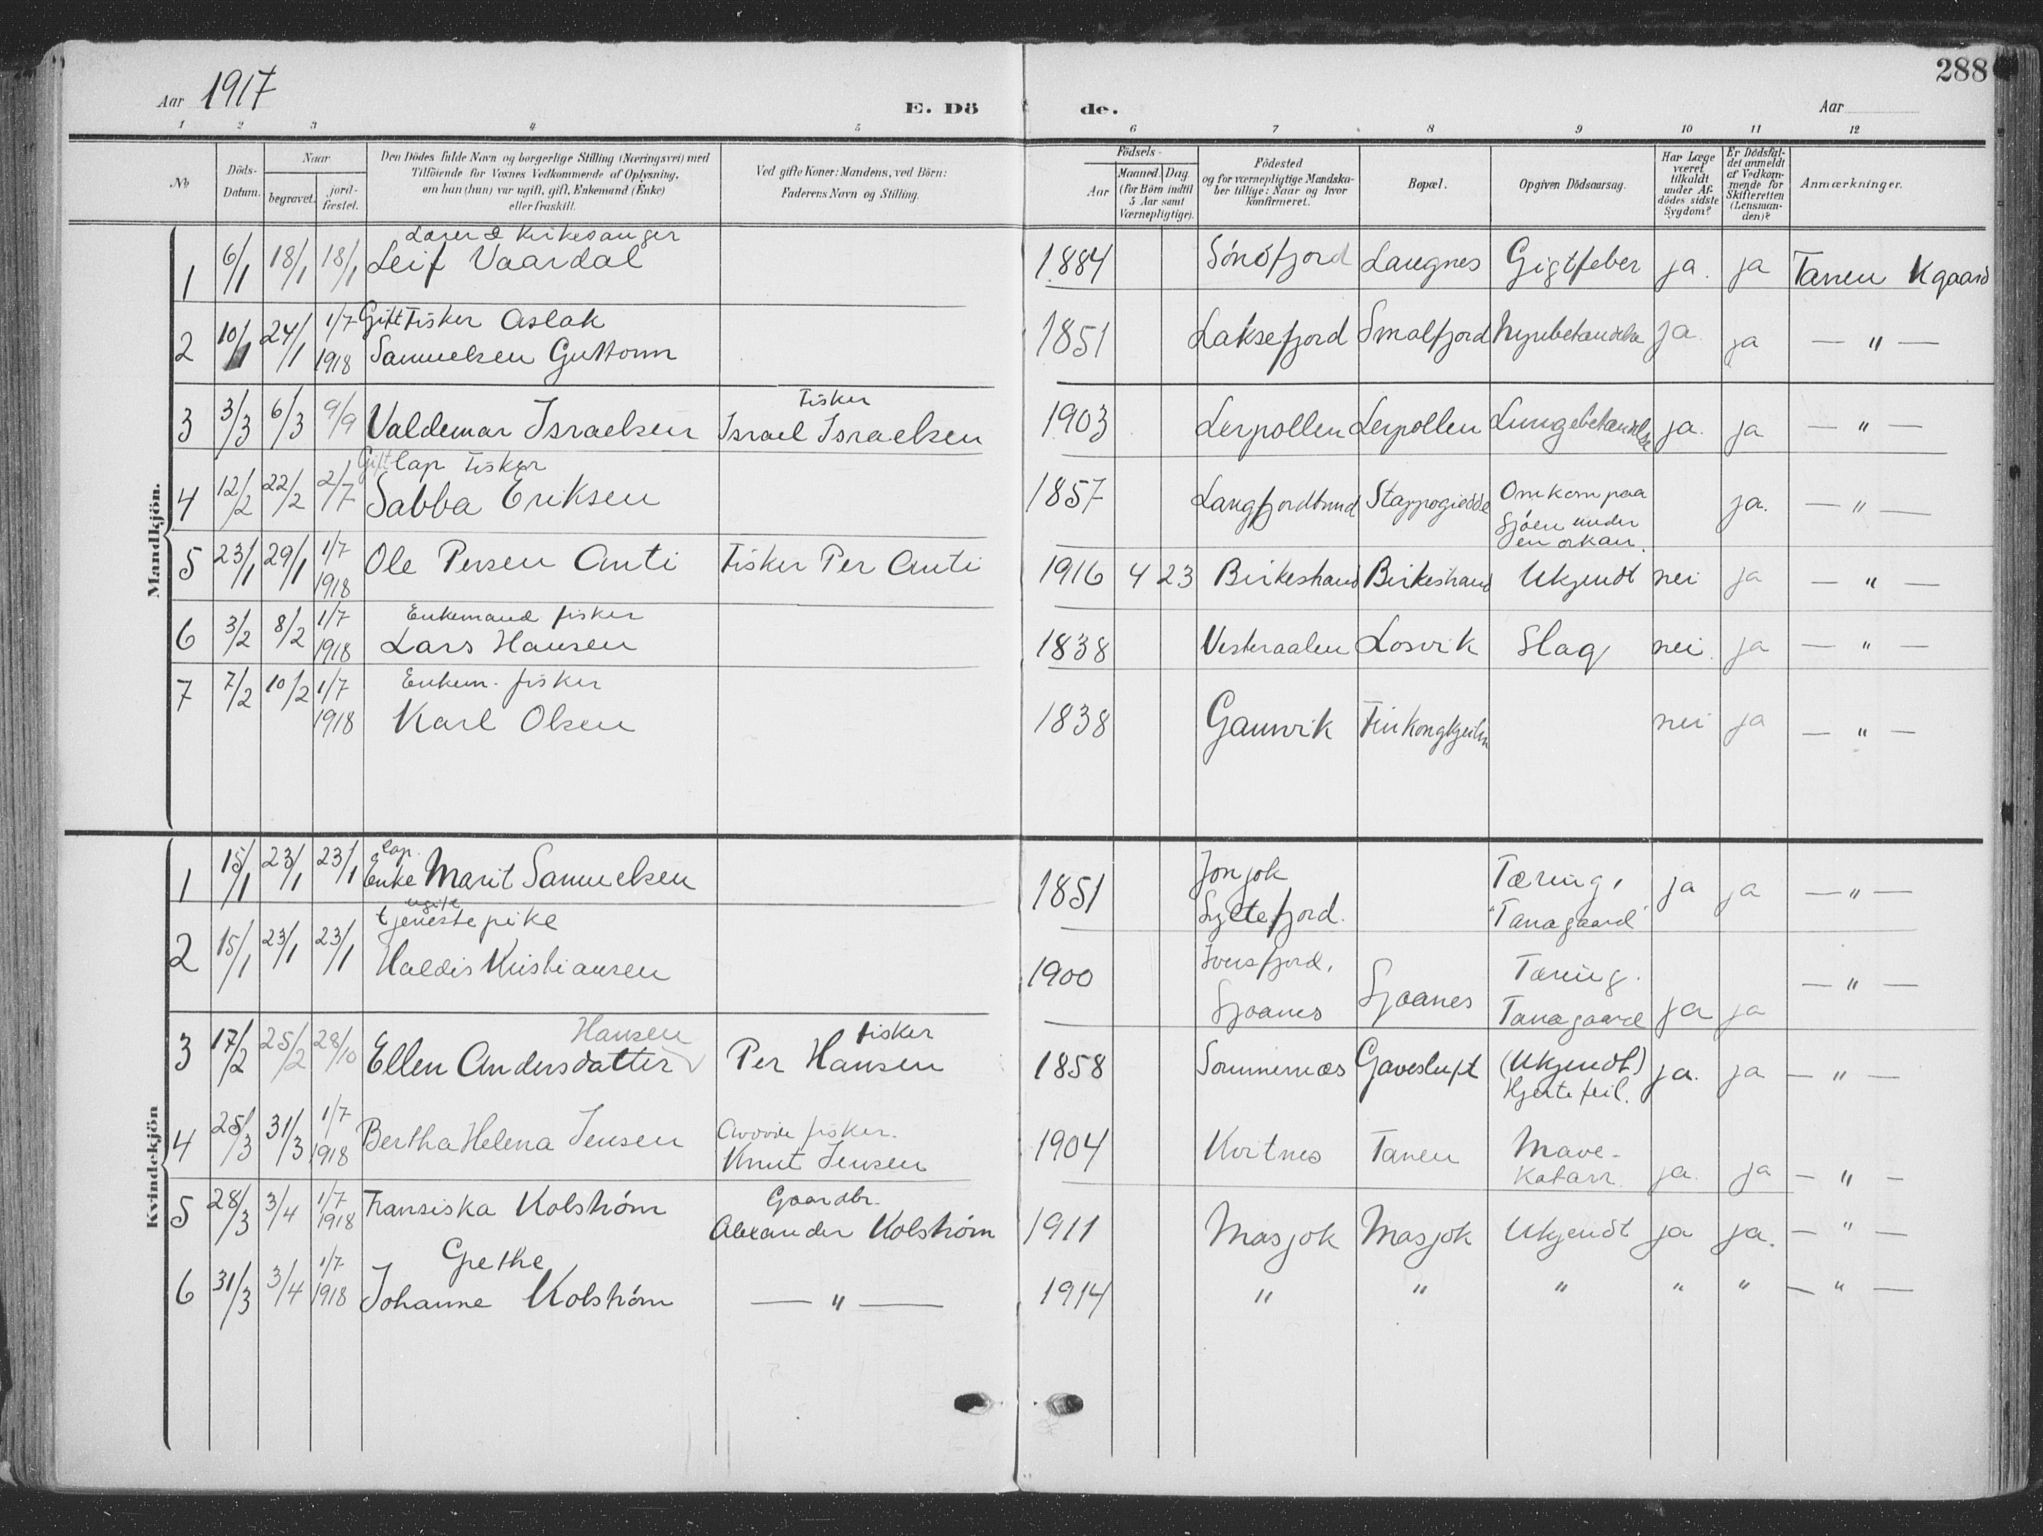 288
Aar 1917
E. Dö de.
Aar
1 2 3 4 5 6 7 8 9 10 11 12
No
Döds-Datum.
Naar
begravet.
jord-fæstet.
Den Dödes fulde Navn og borgerlige Stilling (Næringsvei) med
Tilföiende for Voxnes Vedkommende af Oplysning,
om han (hun) var ugift, gift, Enkemand (Enke)
eller fraskilt.
Ved gifte Koner: Mandens, ved Börn:
Faderens Navn og Stilling.
Födsels-
Aar
Maaned. Dag
(for Börn indtil
5 Aar samt
Værnepligtige).
Födested
og for værnepligtige Mandska-
ber tillige: Naar og hvor
konfirmeret.
Bopæl.
Opgiven Dödsaarsag.
Har Læge
været
tilkaldt
under Af-
dödes sidste
Sygdom?
Er Dödsfal-
det anmeldt
af Vedkom-
mende for
Skifteretten
(Lensman-
den)?
Anmærkninger.
Mandkjön.
Lærer & Kirkesanger
1 6/1 18/1 18/1 Leif Vaardal 1884 Sóndfjord Langnes Gigtfeber ja. ja Tanen Kgaard
Gift Fisker Aslak
2 10/1 24/1 1/7 1918 Samuelsen Guttorm 1851 Laksefjord Smalfjord Nyrebetændelse ja. ja — " —
Fisker
3 3/3 6/3 9/9 Valdemar Israelsen Israel Israelsen 1903 Lerpollen Lerpollen Lungebetændelse ja. ja — " —
Gift lap Fisker
4 12/2 22/2 2/7 Sabba Eriksen 1857 Langfjordbund Stappogiedde Omkom paa
Sjóen under
en orkan. ja. — " —
5 23/1 29/1 1/7 1918 Ole Persen Anti Fisker Per Anti 1916 4 23 Birkestrand Birkestrand Ukjendt nei ja — " —
Enkemand fisker
6 3/2 8/2 1/7 1918 Lars Hansen 1838 Vesteraalen Losvik Slag nei. ja — " —
Enkem. fisker
7 7/2 10/2 1/7 1918 Karl Olsen 1838 Gamvik Finkongkjeilen nei ja — " —
Kvindekjön
lap.
1 15/1 23/1 23/1 Enke Marit Samuelsen 1851 Jonjok
Syltefjord. Tæring,
"Tanagaard" ja ja — " —
ugift
tjenestepike
2 15/1 23/1 23/1 Haldis Kristiansen 1900 Iversfjord,
Sjaanes Sjaanes Tæring.
Tanagaard ja ja — " —
Hansen
3 17/2 25/2 28/10 Ellen Andersdatter Fisker
Per Hansen 1858 Sommernæs Gavesluft (Ukjendt)
Hjertefeil. ja. ja — " —
4 25/3 31/3 1/7 1918 Bertha Helena Jensen fisker.
Knut Jensen 1904 Kvitnes Tanen Mave-
Katarr ja. ja — " —
5 28/3 3/4 1/7 1918 Fransiska Kolstróm Gaardbr.
Alexander Kolstróm 1911 Masjok Masjok Ukjendt ja ja. — " —
Grethe
6 31/3 3/4 1/7 1918 Johanne Kolstróm — " — 1914 " " " " " — " —